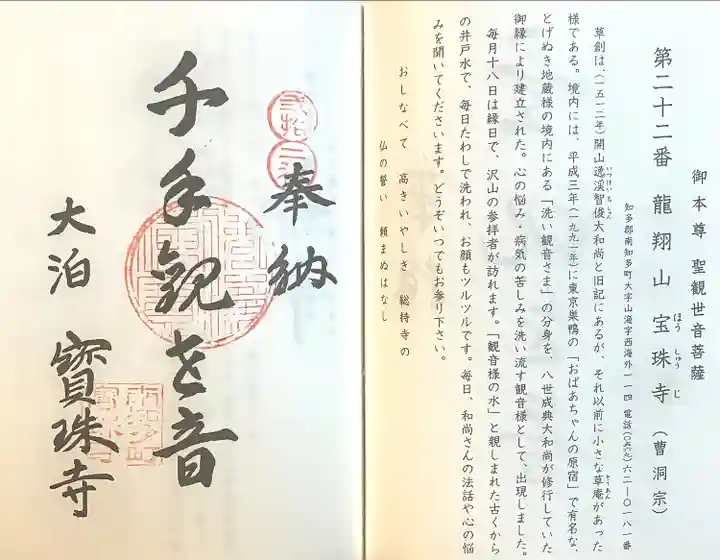 御本尊 聖観世音菩薩
第二十二番 龍翔山 宝珠寺 (曹洞宗)
ほう しゅう じ
知多郡南知多町大字山海字西海外一一四 電話(〇五六九)六二―〇一八一番
草創は、(一五一二年)開山逸渓智俊大和尚と旧記にあるが、それ以前に小さな草庵があった
様である。境内には、平成三年(一九九一年)に東京巣鴨の「おばあちゃんの原宿」で有名な、
とげぬき地蔵様の境内にある「洗い観音さま」の分身を、八世成典大和尚が修行していた
御縁により建立された。心の悩み・病気の苦しみを洗い流す観音様として、出現しました。
毎月十八日は縁日で、沢山の参拝者が訪れます。「観音様の水」と親しまれた古くから
の井戸水で、毎日たわしで洗われ、お顔もツルツルです。毎日、和尚さんの法話や心の悩
みを聞いてくださいます。どうぞいつでもお参り下さい。
おしなべて 高きいやしき 総持寺の
仏の誓い 頼まぬはなし
奉納
千手観世音
大泊 寳珠寺